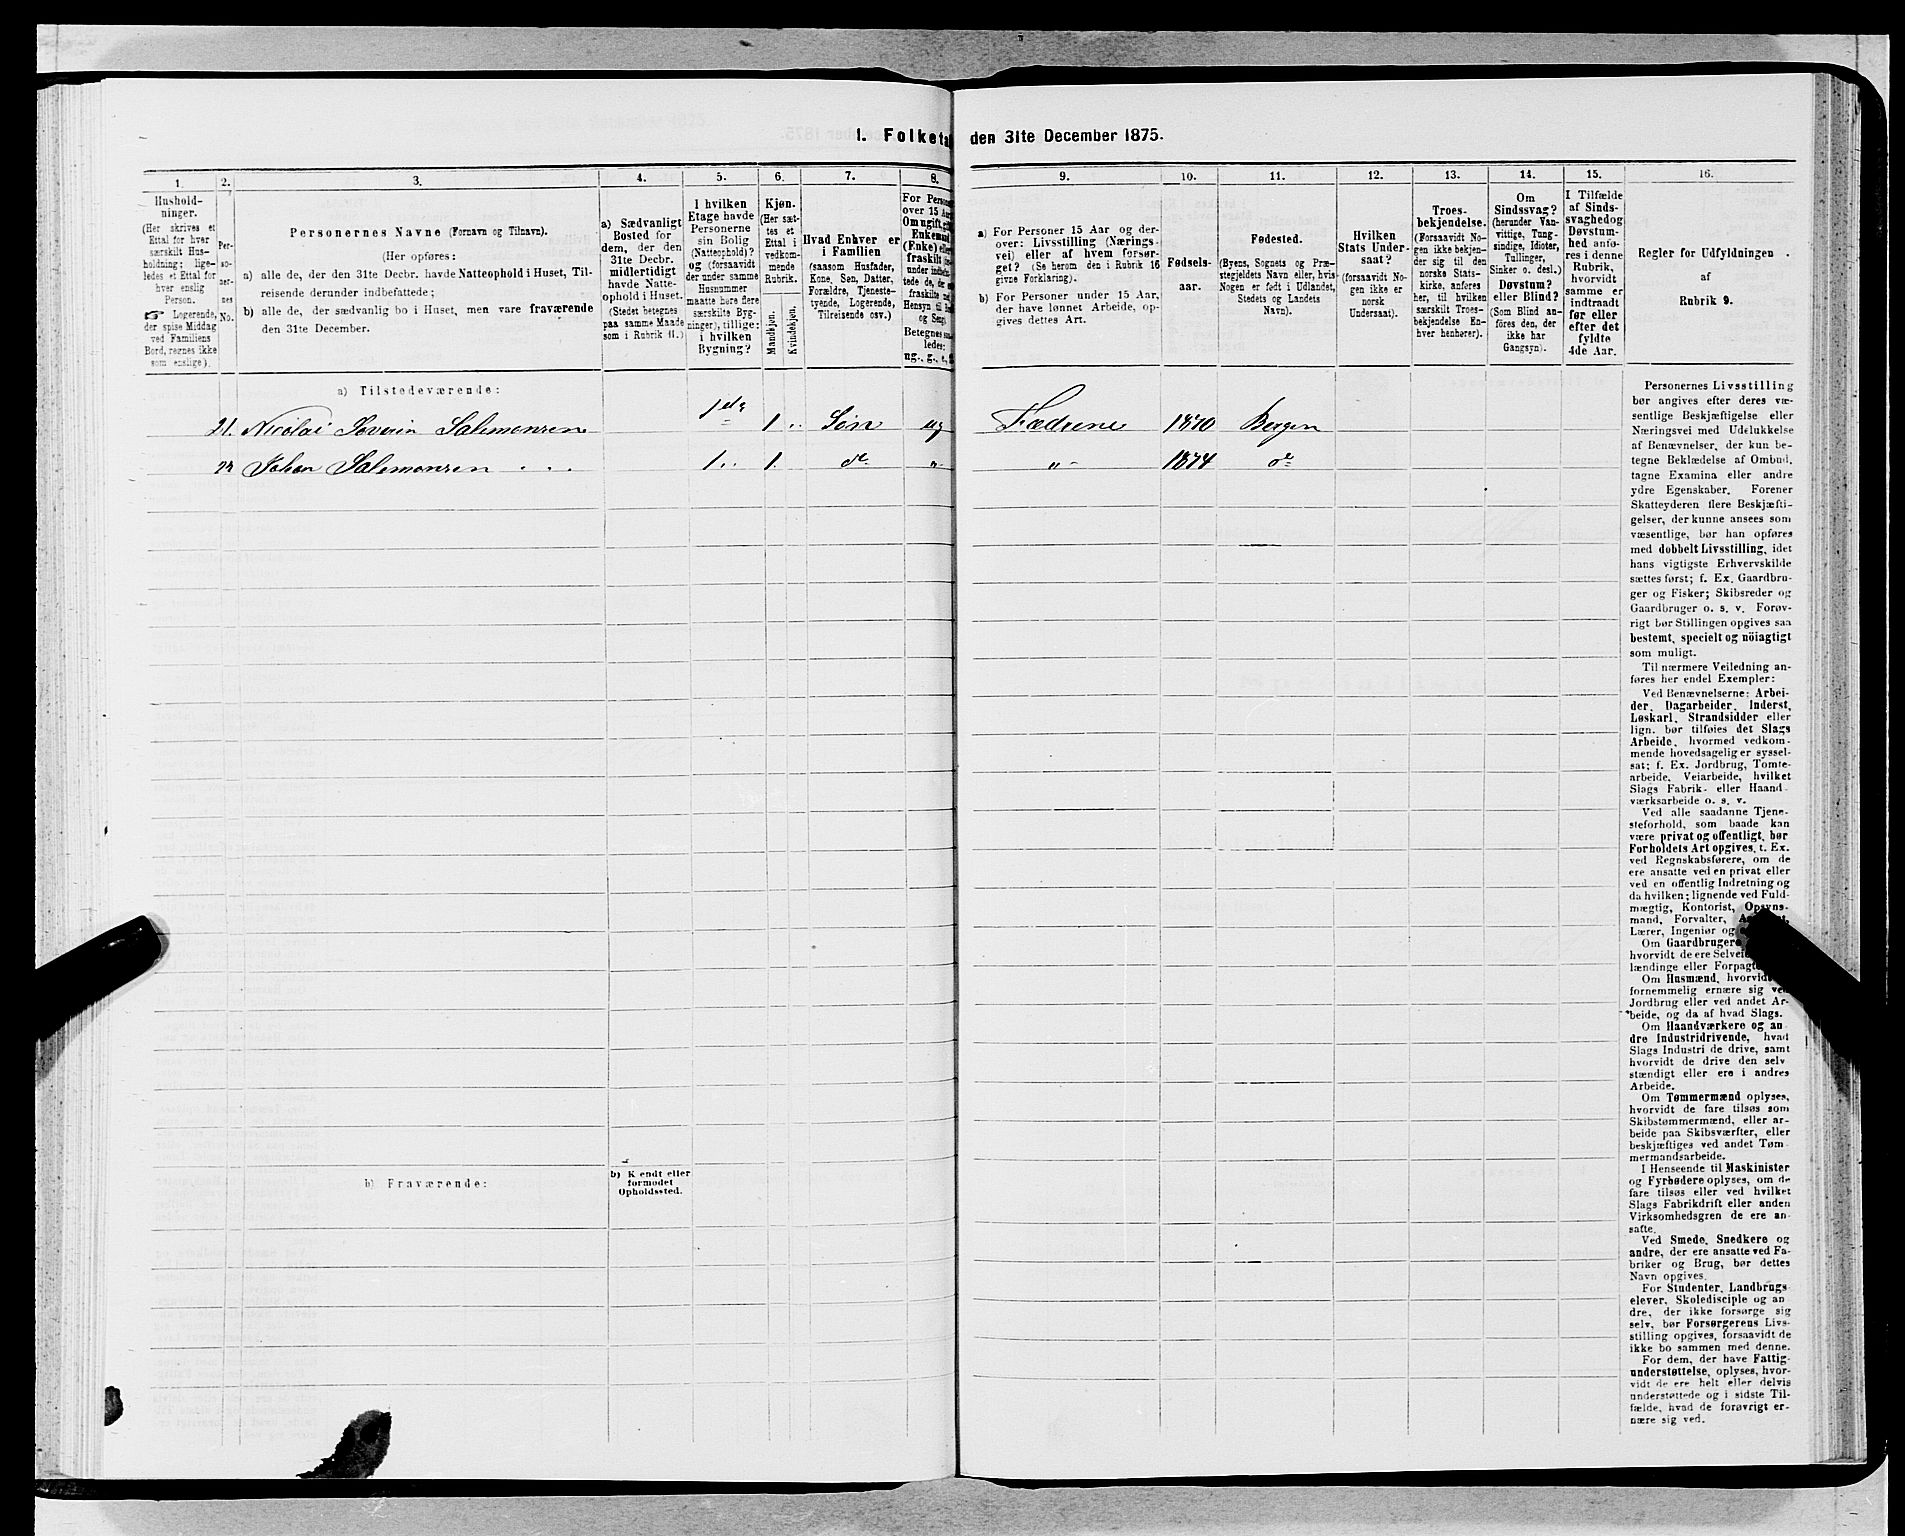 1. Folketal den 31te December 1875.
1. 2. 3. 4. 5. 6. 7. 8. 9. 10. 11. 12. 13. 14. 15. 16.
Hushold-
ninger.
(Her skrives et
Ettal for hver
særskilt Hus-
holdning; lige-
ledes et Ettal for
hver enslig
Person.
☞ Logerende,
der spise Middag
ved Familiens
Bord, regnes ikke
som enslige).
Per-
so-
ner-
nes
No.
Personernes Navne (Fornavn og Tilnavn).
(Her opføres:
a) alle de, der den 31te Decbr. havde Natteophold i Huset, Til-
reisende derunder indbefattede;
b) alle de, der sædvanlig bo i Huset, men vare fraværende
den 31te December.
a) Sædvanligt
Bosted for
dem, der den
31te Decbr.
midlertidigt
havde Natte-
ophold i Huset.
(Stedet betegnes
paa samme Maade
som i Rubrik 11.)
I hvilken
Etage havde
Personerne
sin Bolig
(Natteophold)?
og (forsaavidt
der under samme
Husnummer
maatte høre flere
særskilte Byg-
ninger), tillige:
i hvilken
Bygning?
Kjøn.
(Her sæt-
tes et
Ettal i
vedkom-
mende
Rubrik.
Mandkjøn.
Kvindekjøn.
Hvad Enhver er
i Familien
(saasom Husfader,
Kone, Søn, Datter,
Forældre, Tjeneste-
tyende, Logerende,
Tilreisende osv.)
For Person
over 15 Aar
Om ugift, gift
Enkemand
(Enke) eller
fraskilt
under indbefat-
tede de, der
fraskilte
Hensyn til
og Seng).
Betegnes saa-
ledes:
ug., g., e.,
a) For Personer 15 Aar og der-
over: Livsstilling (Nærings-
vei) eller af hvem forsør-
get? (Se herom den i Rubrik 16
givne Forklaring).
b) For Personer under 15 Aar,
der have lønnet Arbeide, op-
gives dettes Art.
Fødsels-
aar.
Fødested.
(Byens, Sognets og Præ-
stegjeldets Navn eller, hvis
Nogen er født i Udlandet,
Stedets og Landets
Navn).
Hvilken
Stats Under-
saat?
(forsaavidt No-
gen ikke er
norsk
Undersaat).
Troes-
bekjendelse.
(Forsaavidt No-
gen ikke bekjen-
der sig til den
norske Stats-
kirke, anføres
her, til hvilken
særskilt Troes-
bekjendelse En-
hver henhører).
Om
Sindssvag?
(herunder Van-
vittige, Tung-
sindige, Idioter,
Tullinger,
Sinker o. desl.)
Døvstum?
eller Blind?
(Som Blind an-
føres den, der
ikke har
Gangsyn).
I Tilfælde
af Sinds-
svaghed og
Døvstum-
hed anfø-
res i denne
Rubrik,
hvorvidt
samme er
indtraadt
før eller
efter det
fyldte
4de Aar.
Regler for Udfyldningen
af
Rubrik 9.
a) Tilstedeværende:
21. Nicolai Severin Salomonsen 1ste 1 Søn ug Fædrene 1870 Bergen
22 Johan Salomonsen 1 1. do " " 1874 do
b) Fraværende:
b) Kjendt eller
formodet
Opholdssted.
Personernes Livsstilling
bør angives efter deres væ-
sentlige Beskjæftigelse eller
Næringsvei med Udelukkelse
af Benævnelser, der kun be-
tegne Beklædelse af Ombud,
tagne Examina eller andre
ydre Egenskaber. Forener
Skatteyderen flere Beskjæfti-
gelser, der kunne ansees som
væsentlige, bør han opføres
med dobbelt Livsstilling, idet
hans vigtigste Erhvervskilde
sættes først; f. Ex. Gaardbru-
ger og Fisker; Skibsreder og
Gaardbruger o. s. v. Forøv-
rigt bør Stillingen opgives saa
bestemt, specielt og nöiagtigt
som muligt.
Til nærmere Veiledning an-
føres her endel Exempler:
Ved Benævnelserne: Arbei-
der, Dagarbeider, Inderst,
Løskarl, Strandsidder eller
lign. bør tilføies det Slags
Arbeide, hvormed vedkom-
mende hovedsagelig er syssel-
sat; f. Ex. Jordbrug, Tomte-
arbeide, Veiarbeide, hvilket
Slags Fabrik- eller Haand-
værksarbeide o. s. v.
Ved alle saadanne Tjene-
steforhold, som baade kan
være privat og offentligt, bør
Forholdets Art opgives, t. Ex.
ved Regnskabsførere, om de
ere ansatte ved en privat eller
ved en offentlig Indretning og
da hvilken; lignende ved Fuld-
mægtig, Kontorist, Opsyns-
mand, Forvalter,
Lærer, Ingeniør og
Om Gaardbrugere
hvorvidt de ere Selveie
lændinge eller Forpagte
Om Husmænd, hvorvidt
fornemmelig ernære sig ved
Jordbrug eller ved andet Ar-
beide, og da af hvad Slags.
Om Haandværkere og an
dre Industridrivende, hvad
Slags Industri de drive, samt
hvorvidt de drive den selv
stændigt eller ere i andres
Arbeide.
Om Tømmermænd oplyses,
hvorvidt de fare tilsøs som
Skibstømmermænd, eller ar-
beide paa Skibsværfter, eller
beskjæftiges ved andet Tøm-
mermandsarbeide.
I Henseende til Maskinister
og Fyrbødere oplyses, om de
fare tilsøs eller ved hvilket
Slags Fabrikdrift eller anden
Virksomhedsgren de ere an-
satte.
Ved Smede, Snedkere og
andre, der ere ansatte ved Fa-
briker og Brug, bør dettes
Navn opgives.
For Studenter, Landbrugs-
elever, Skoledisciple og an
dre, der ikke forsørge sig
selv, bør Forsørgerens Livs-
stilling opgives, forsaavidt de
ikke bo sammen med denne.
For dem, der have Fattig-
understøttelse, oplyses, hvor-
vidt de ere helt eller delvis
understøttede og i sidste Til-
fælde, hvad de forøvrigt er-
nære sig ved.